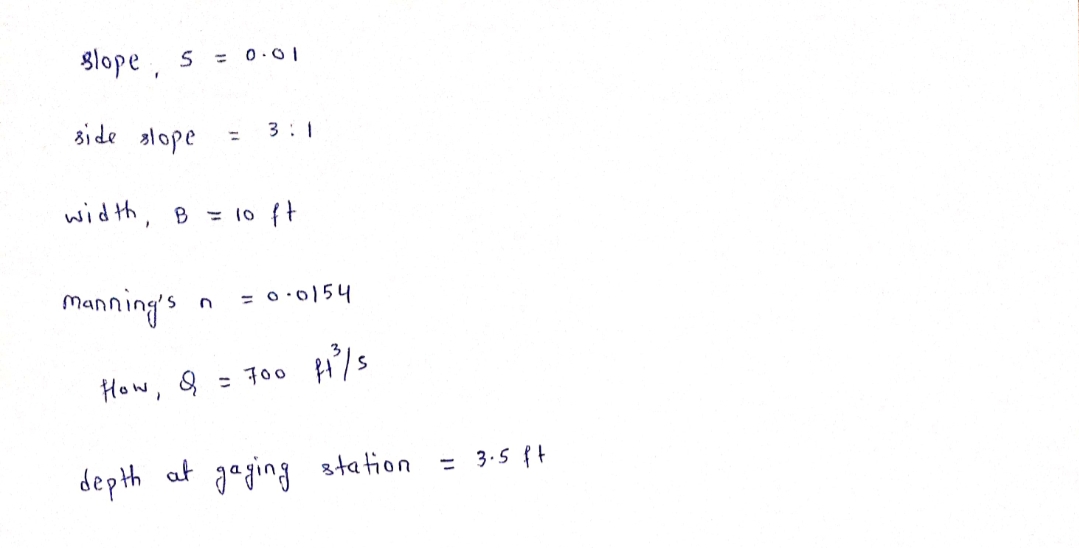 slope, S = 0.01
side slope = 3:1
width, B = 10 ft
Manning's n = 0.0154
flow, Q = 700 ft³/s
depth at gaging station = 3.5 ft